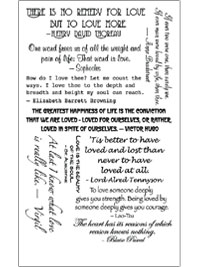 THERE IS NO REMEDY FOR LOVE
BUT TO LOVE MORE.
~HENRY DAVID THOREAU
One word frees us of all the weight and
pain of life: That word is love.
~ Sophocles
How do I love thee? Let me count the
ways. I love thee to the depth and
breadth and height my soul can reach.
~ Elizabeth Barrett Browning
If ever two were one, then surely we.
If ever man were loved by wife, then thee.
~ Anne Bradstreet
THE GREATEST HAPPINESS OF LIFE IS THE CONVICTION
THAT WE ARE LOVED - LOVED FOR OURSELVES, OR RATHER,
LOVED IN SPITE OF OURSELVES. ~ VICTOR HUGO
At last I know what love
is really like. ~ Virgil
LOVE IS THE BEAUTY
OF THE SOUL.
~ ST. AUGUSTINE
'Tis better to have
loved and lost than
never to have
loved at all.
- Lord Alred Tennyson
To love someone deeply
gives you strength. Being loved by
someone deeply gives you courage.
~ Lao-Tzu
The heart has its reasons of which
reason knows nothing.
- Blaise Pascal